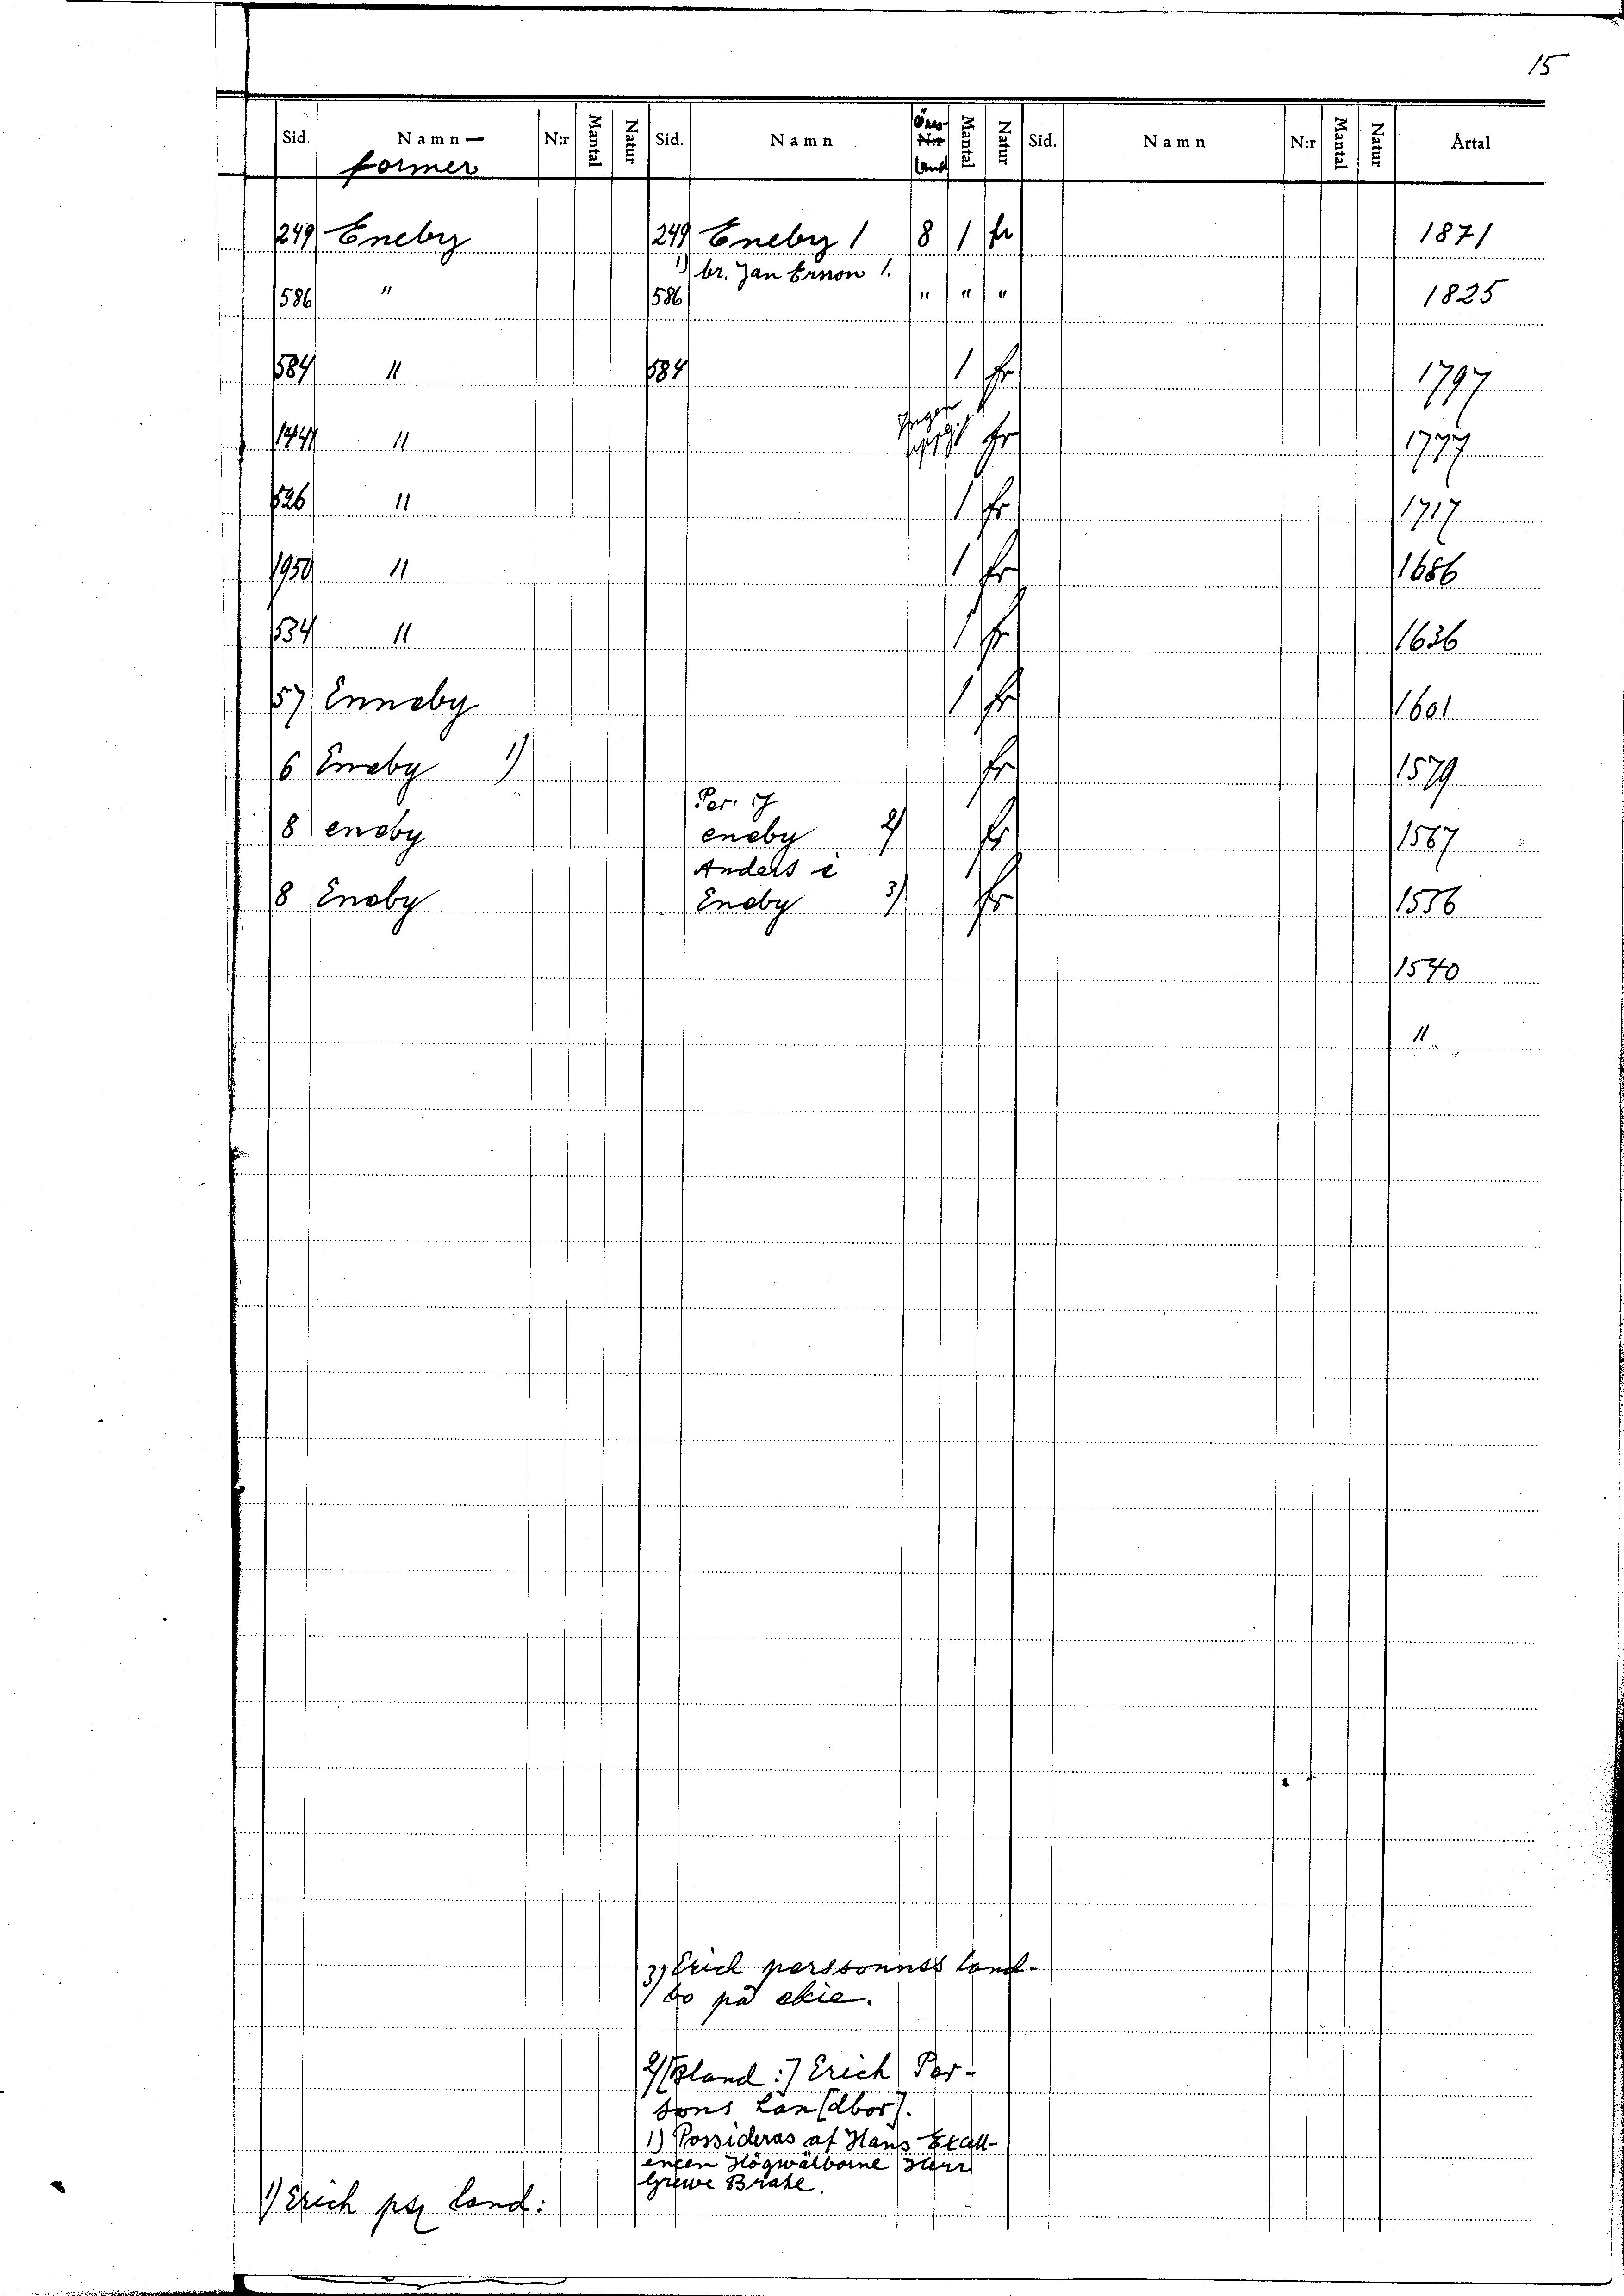 15
Sid. Namn— N:r Mantal Natur Sid. Namn Öres- N:r land Mantal Natur Sid. Namn N:r Mantal Natur Årtal
former
249 Eneby 249 Eneby 1 8 1 fr 1871
1) br. Jan Ersson 1.
586 " 586 " " " 1825
584 " 584 1 fr 1797
1447 " fr 1777
526 " 1 fr 1717
1950 " 1 fr 1686
534 " 1 fr 1636
57 Enneby 1 fr 1601
6 Eneby 1) fr 1579
Per. J
8 eneby eneby 2) fr 1567
Anders i
8 Eneby Eneby 3) fr 1556
1540
"
3) Erich perssonnss land-
bo på ekie.
2) [Bland:] Erich Per-
sons Lan[dbor].
1) Possideras af Hans Excell-
encen Högwälborne Herr
Grewe Brahe.
1) Erich psz land: